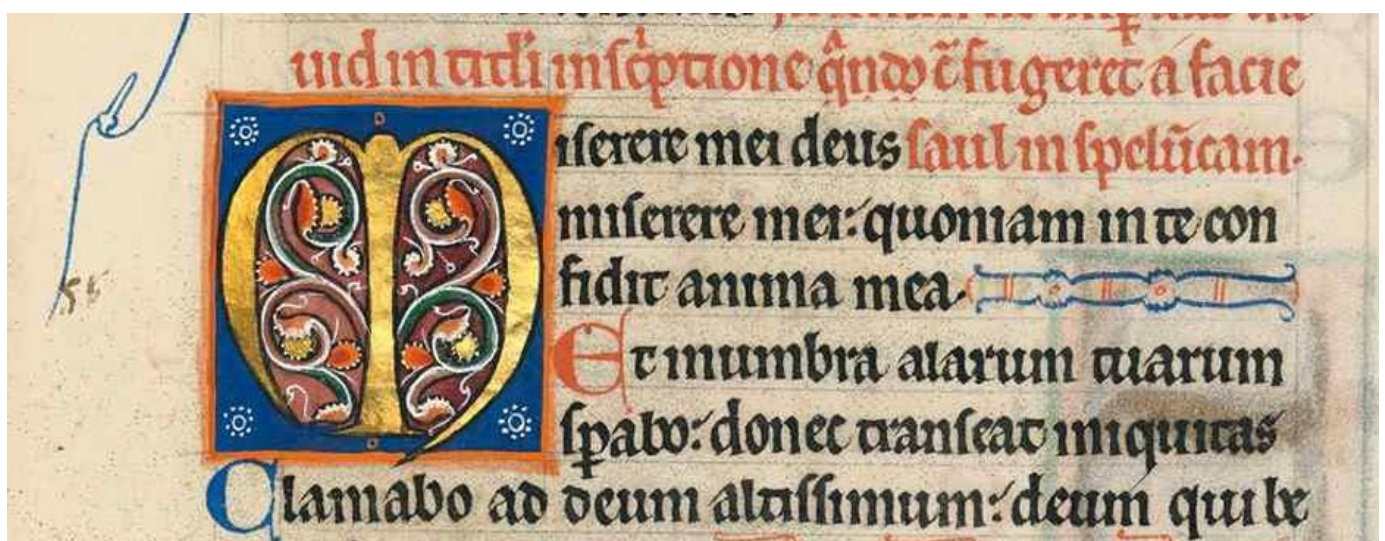 uid in titl̄i inſc̃ptione q̃ndo c̄ fugeret a facie
Miſerere mei deus ſaul in ſpelūcam.
miſerere mei: quoniam in te con
fidit anima mea.
Et in umbra alarum tuarum
ſꝑabo: donec tranſeat iniquitas
Clamabo ad deum altiſſimum: deum qui be